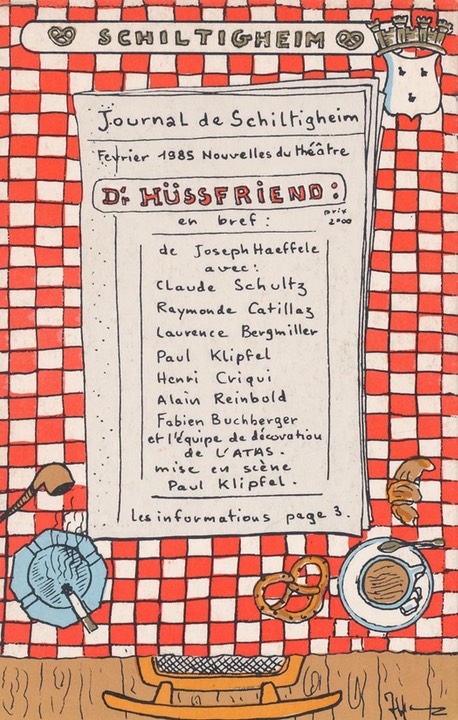 SCHILTIGHEIM
Journal de Schiltigheim
Fevrier 1985 Nouvelles du théâtre
Dr HÜSSFRIEND:
en bref:
prix
2000
de Joseph Haeffele
avec:
Claude Schultz
Raymonde Catillaz
Laurence Bergmiller
Paul Klipfel
Henri Criqui
Alain Reinbold
Fabien Buchberger
et l'équipe de décoration
de L'ATAS.
mise en scène
Paul Klipfel.
Les informations page 3.